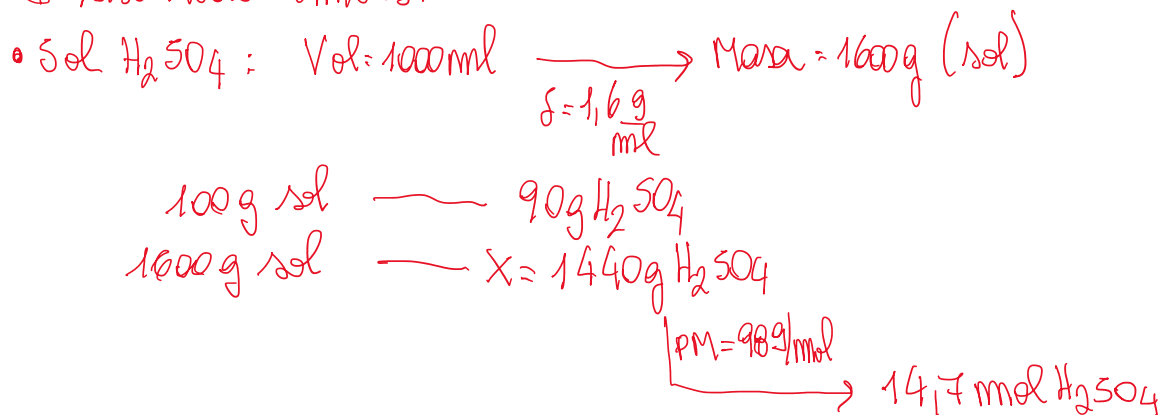 • Sol H₂SO₄ : Vol = 1000ml → Masa = 1600g (sol)
δ = 1,6 g/ml
100g sol — 90g H₂SO₄
1600g sol — X = 1440g H₂SO₄
PM = 98g/mol
→ 14,7 mol H₂SO₄